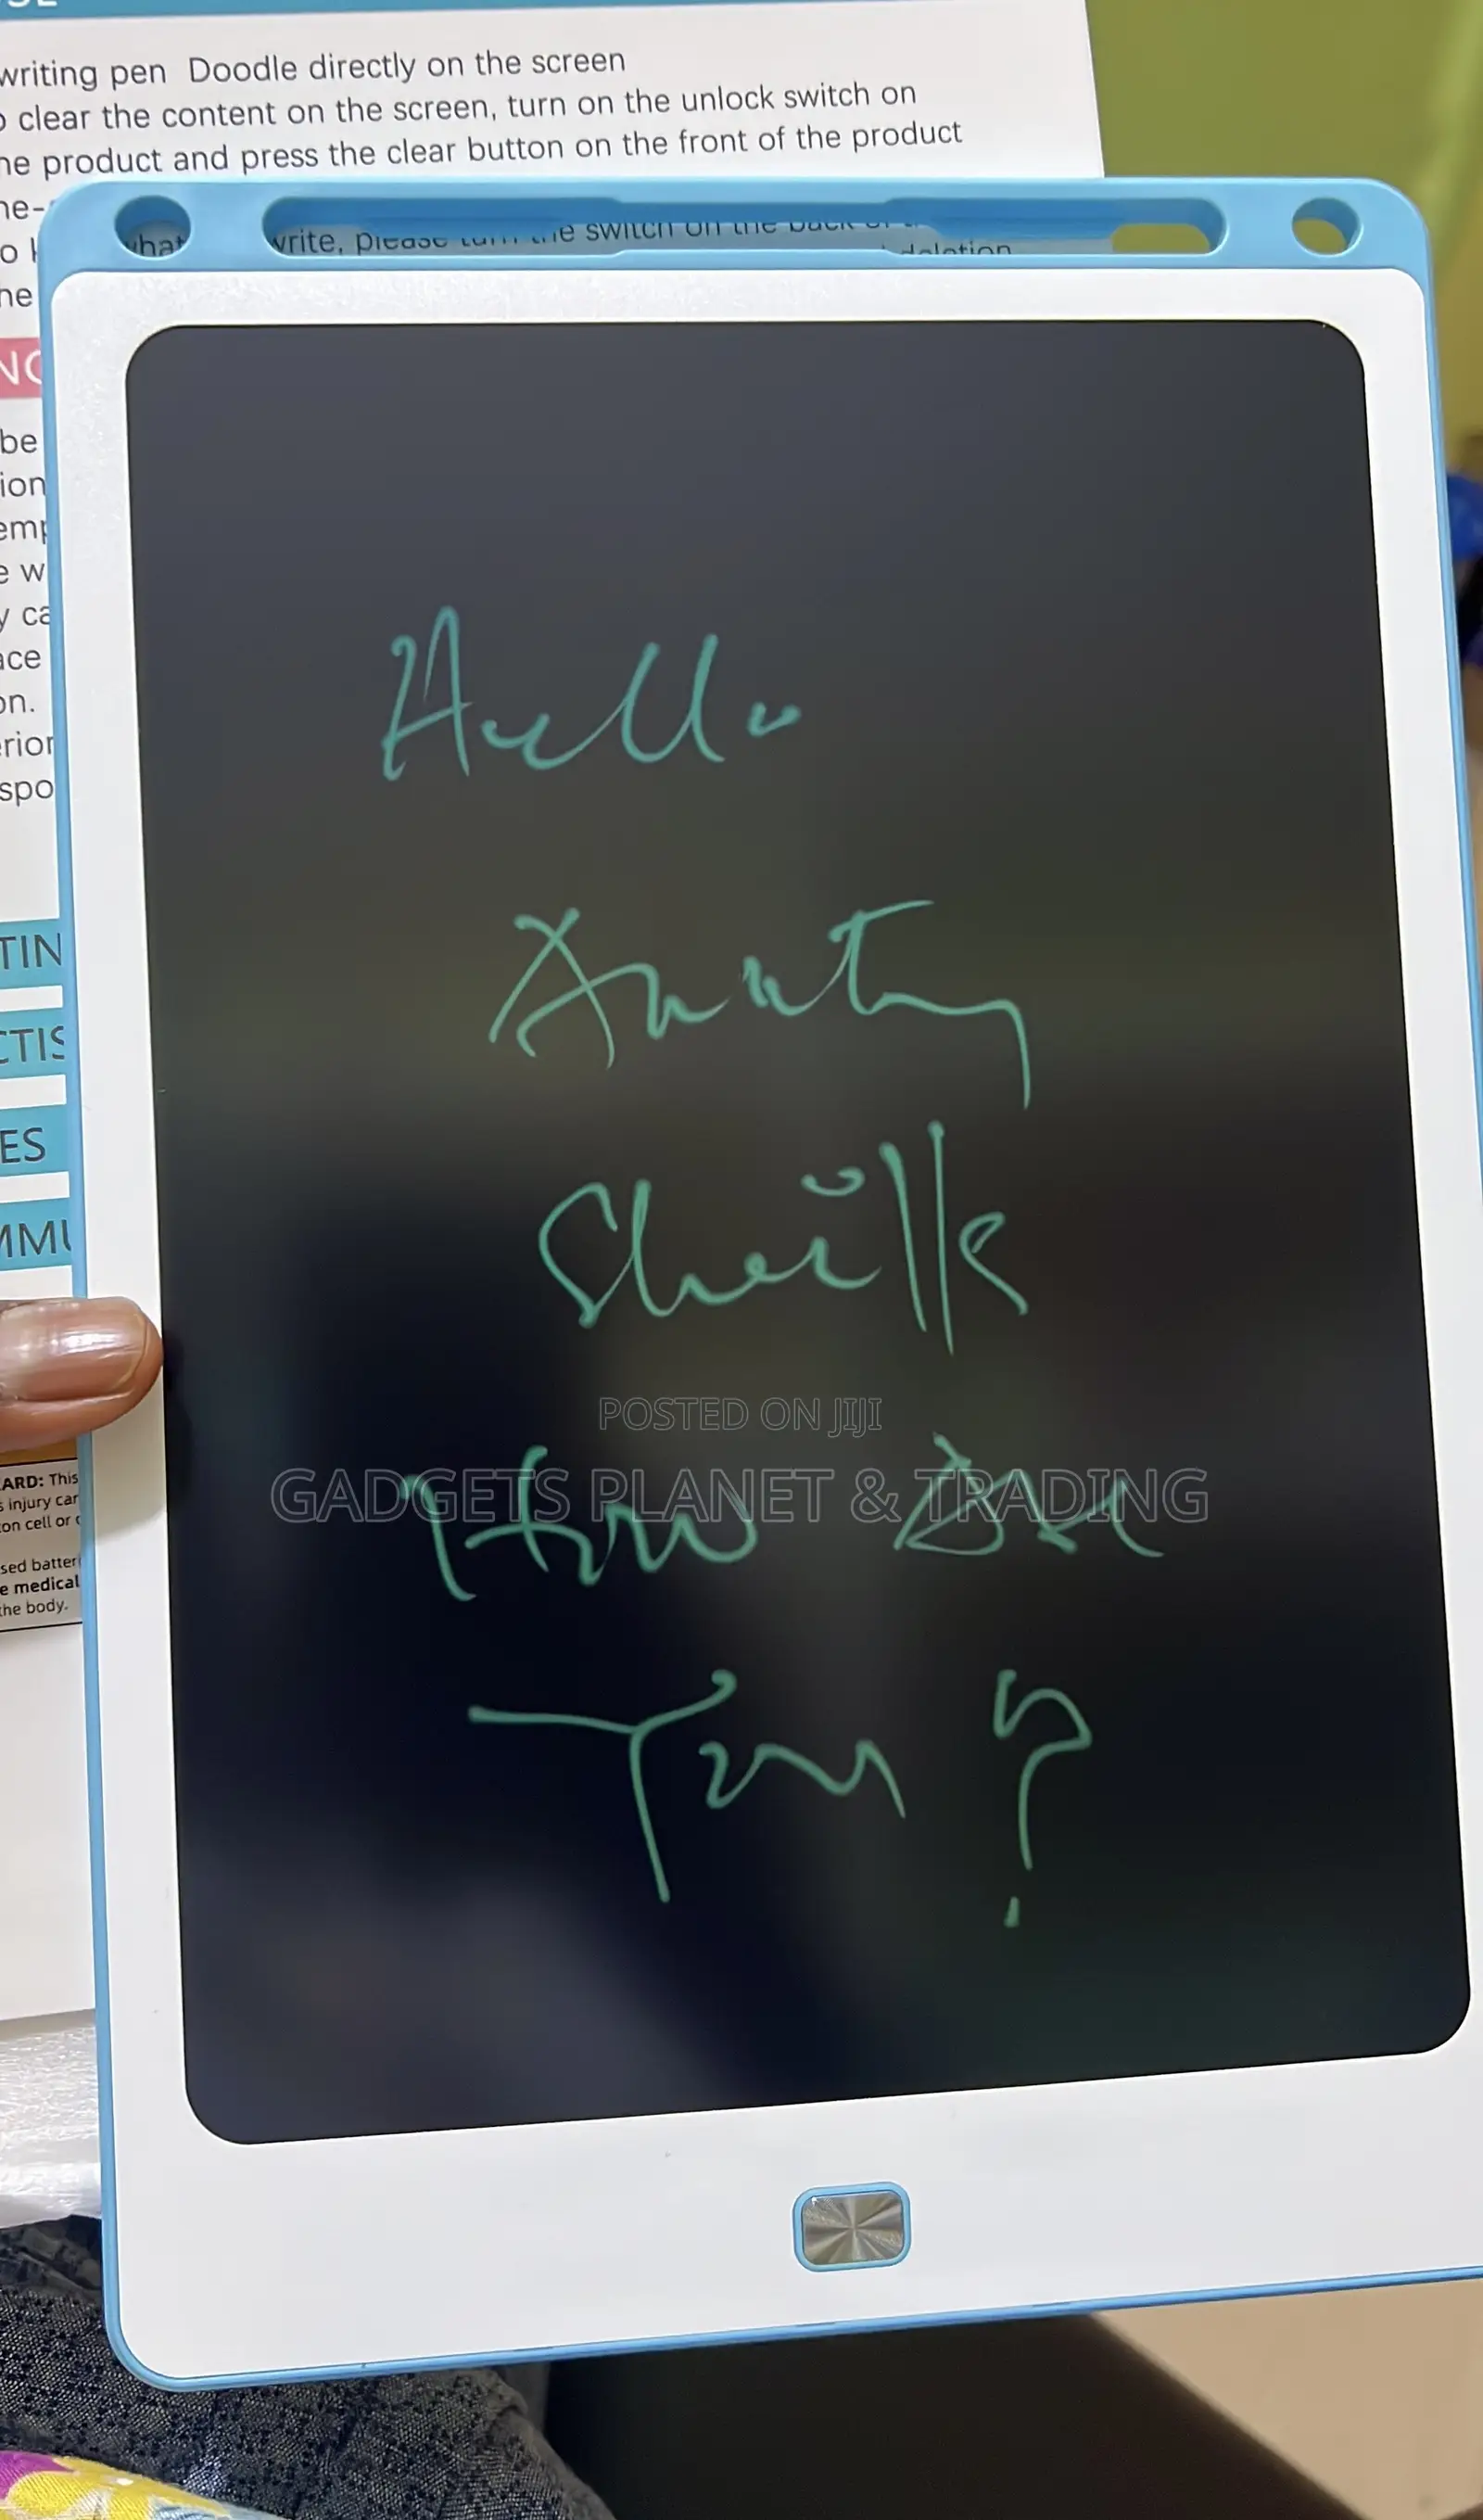 writing pen Doodle directly on the screen
clear the content on the screen, turn on the unlock switch on
product and press the clear button on the front of the product
write, please turn the switch on the back
deletion
be
ion
e w
y ca
ace
on.
spo
Hello
Aunty
Sheilla
How Are
You?
POSTED ON JIJI
GADGETS PLANET & TRADING
TIN
CTIS
ES
MMU
ARD: This
s injury can
on cell or
sed batter
e medical
the body.